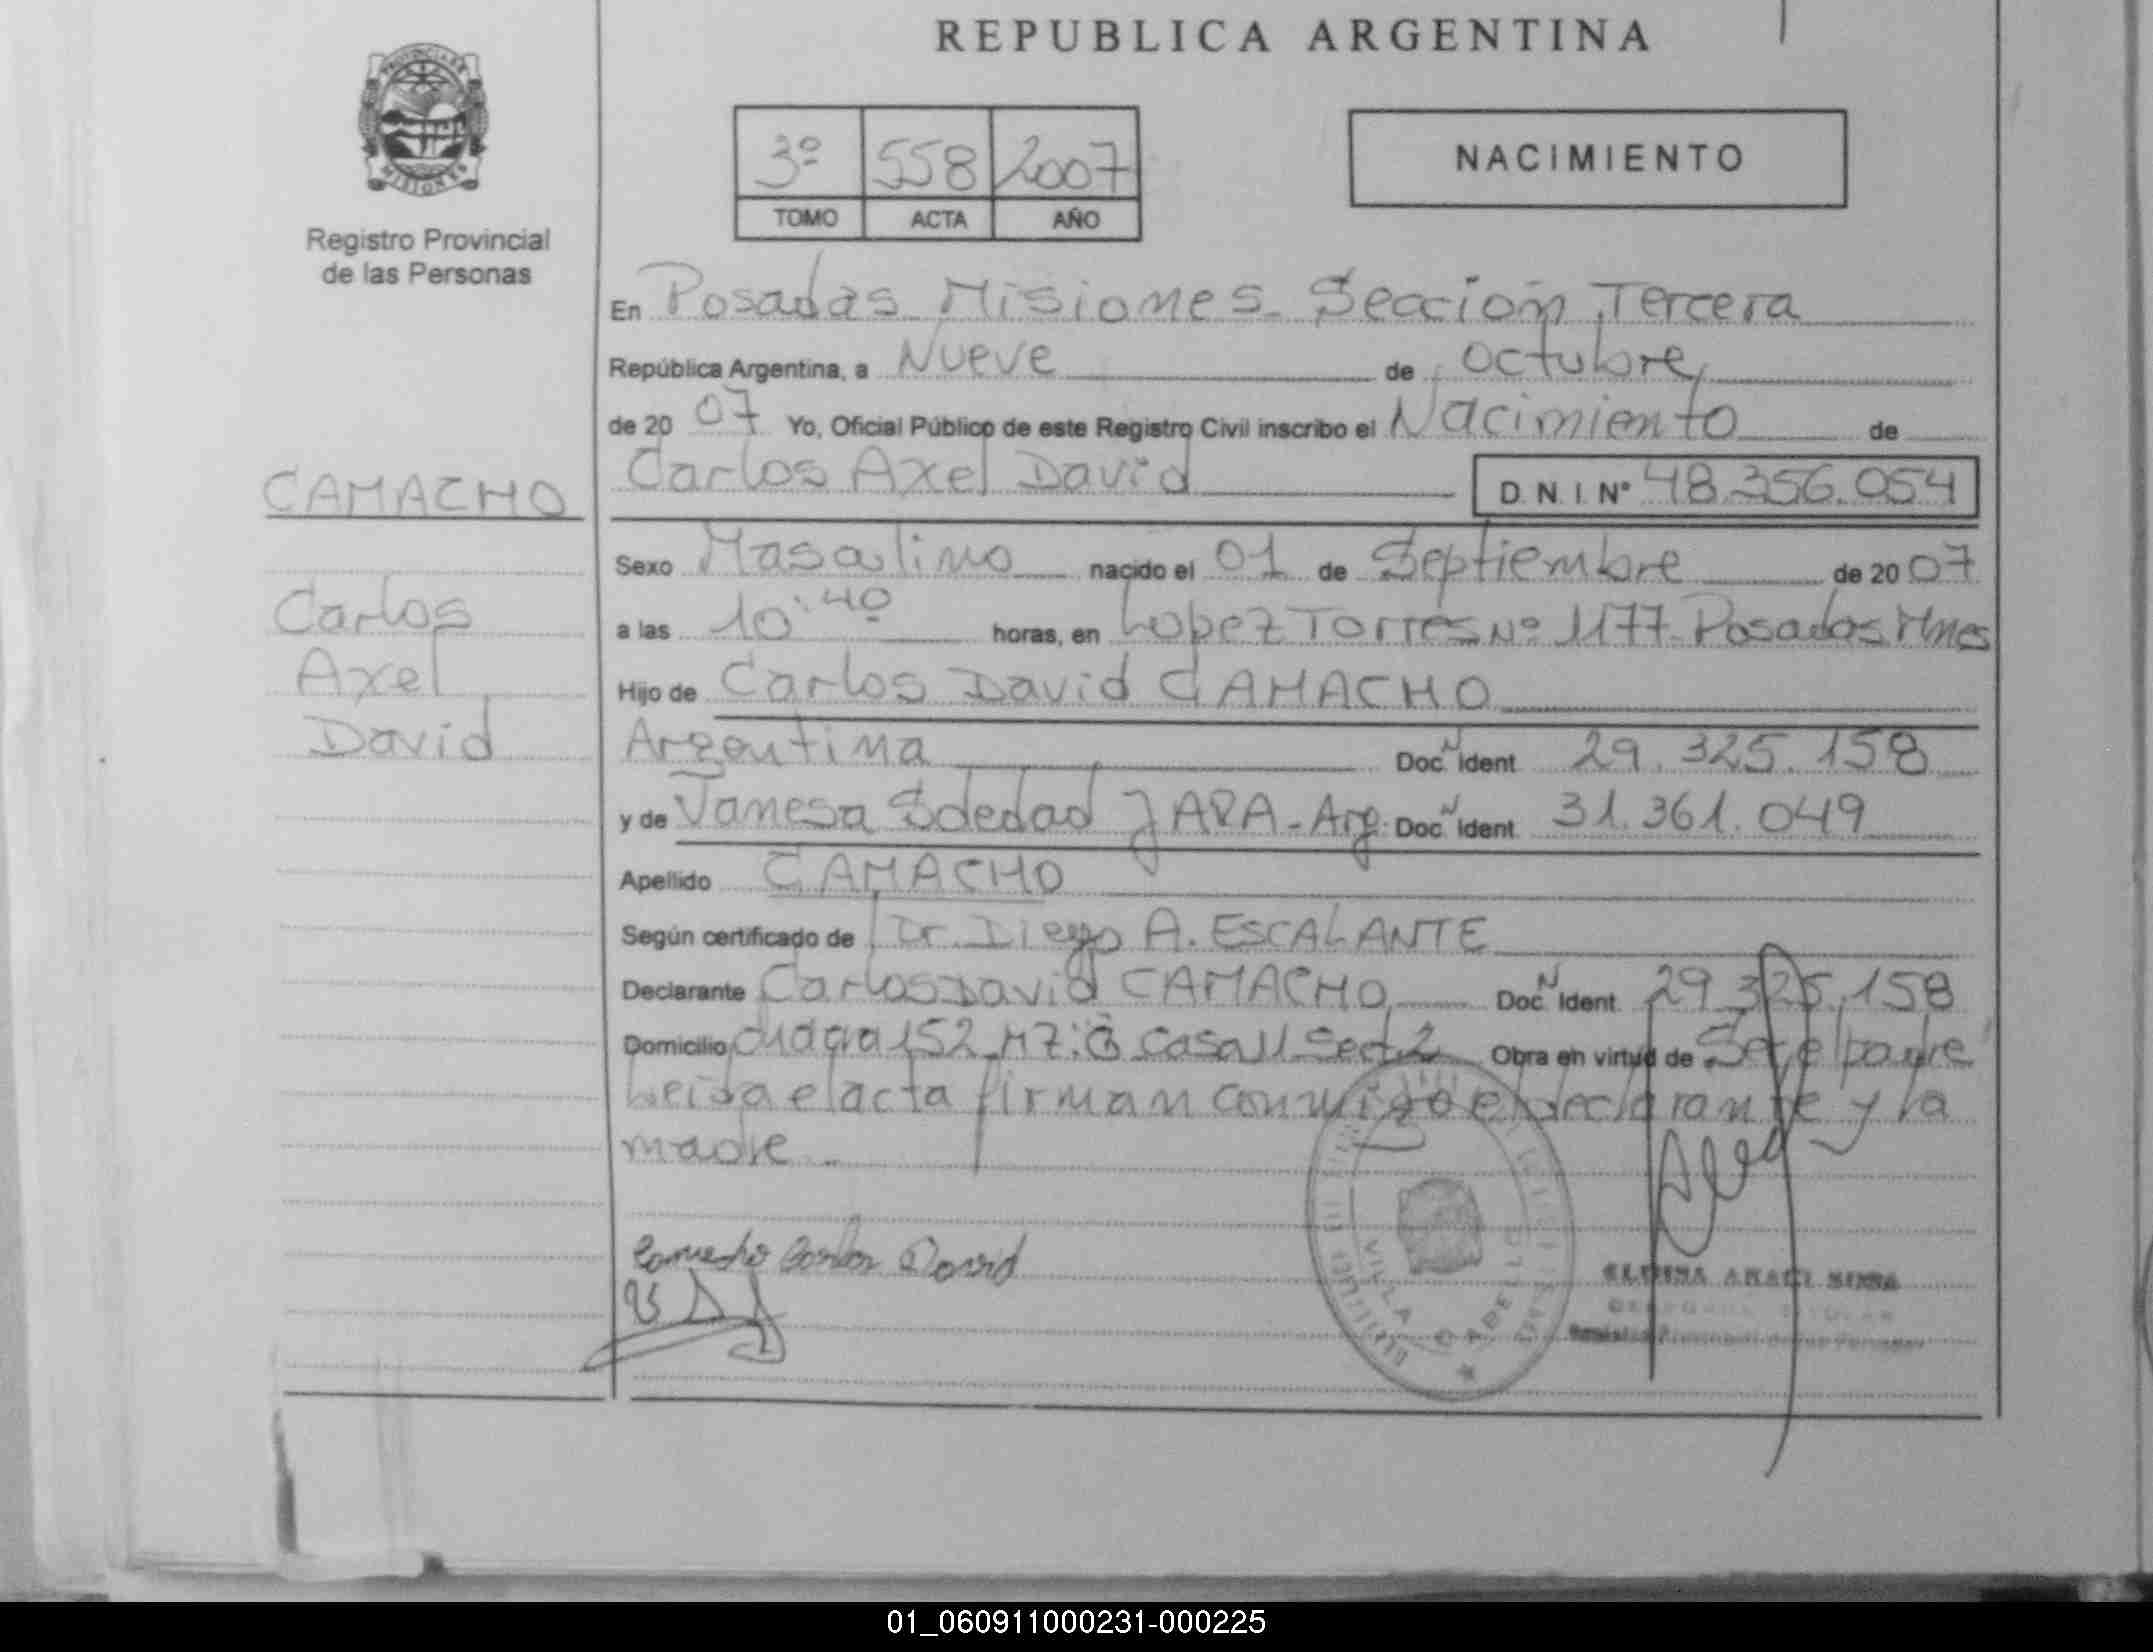 REPUBLICA ARGENTINA
PROVINCIA DE
MISIONES
Registro Provincial
de las Personas
3º 558 2007
TOMO ACTA AÑO
NACIMIENTO
En Posadas Misiones Sección Tercera
República Argentina, a Nueve de octubre
de 20 07 Yo, Oficial Público de este Registro Civil inscribo el Nacimiento de
CAMACHO
Carlos
Axel
David
Carlos Axel David D.N.I. Nº 48.356.054
Sexo Masculino nacido el 01 de Septiembre de 20 07
a las 10:40 horas, en Lopez Torres Nº 1177 Posadas Mnes
Hijo de Carlos David CAMACHO
Argentina Doc. Ident N 29.325.158
y de Vanesa Soledad JARA - Arg. Doc. Ident. N 31.361.049
Apellido CAMACHO
Según certificado de Dr. Diego A. ESCALANTE
Declarante Carlos David CAMACHO Doc. Ident. N 29.325.158
Domicilio chacra 152 MZ: G casa 11 Sect. 2 Obra en virtud de Ser el padre
Leida el acta firman conmigo el declarante y la
madre.
Camacho Carlos David
VILLA CABELLO
01_060911000231-000225